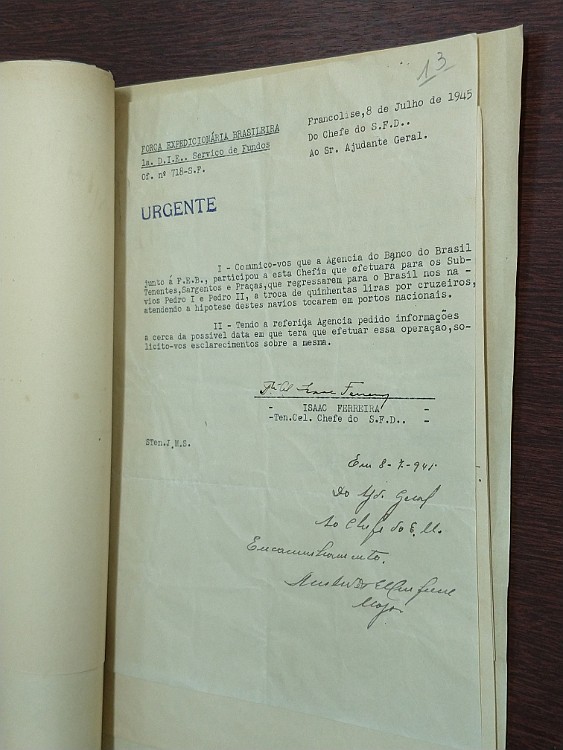 13
Francolise,8 de Julho de 1945
Do Chefe do S.F.D..
Ao Sr. Ajudante Geral.
FORÇA EXPEDICIONÁRIA BRASILEIRA
1a. D.I.E.. Serviço de Fundos
Of. nº 718-S.F.
URGENTE
I - Comunico-vos que a Agencia do Banco do Brasil
junto á F.E.B., participou a esta Chefia que efetuará para os Sub-
Tenentes,Sargentos e Praças,que regressarem para o Brasil nos na -
vios Pedro I e Pedro II, a troca de quinhentas liras por cruzeiros,
atendendo a hipotese destes navios tocarem em portos nacionais.
II - Tendo a referida Agencia pedido informações
a cerca da possível data em que terá que efetuar essa operação,so-
licito-vos esclarecimentos sobre a mesma.
- ISAAC FERREIRA -
-Ten.Cel. Chefe do S.F.D.. -
STen.J.M.S.
Em 8-7-945
Do Ajd. Geral
Ao Chefe do E.M.
Encaminhamento.
Major